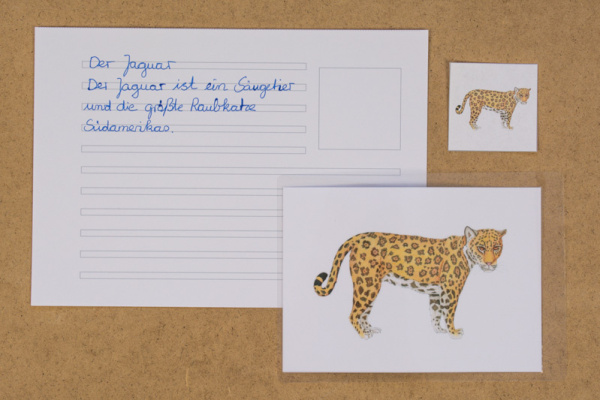 Der Jaguar
Der Jaguar ist ein Säugetier
und die größte Raubkatze
Südamerikas.